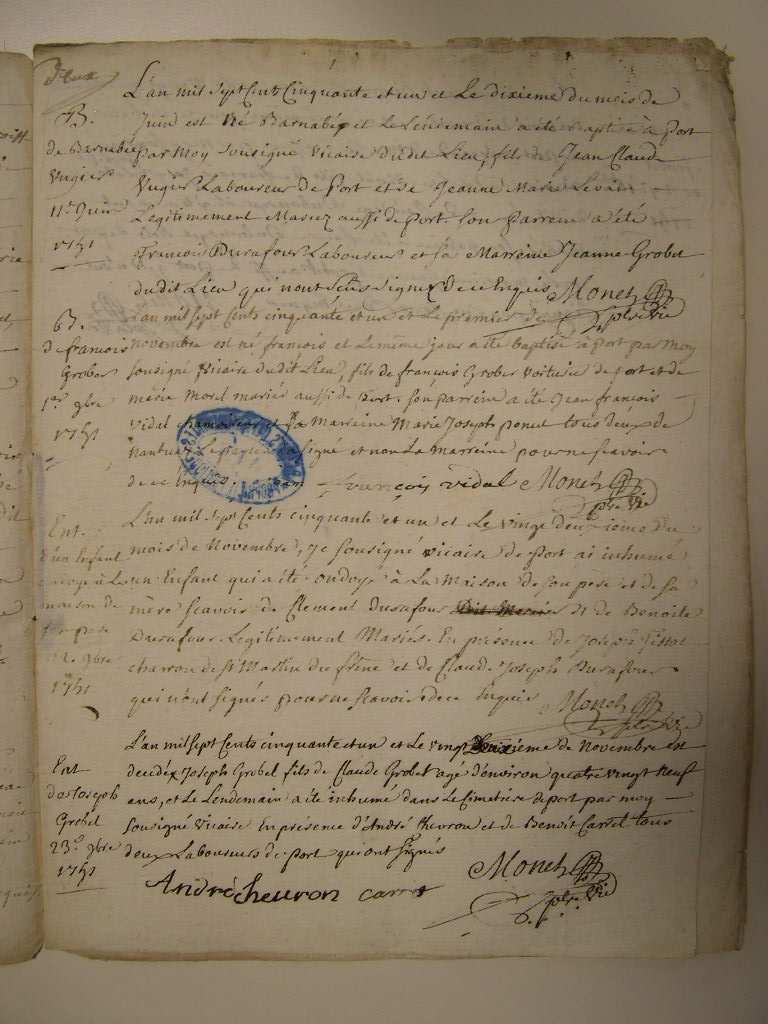 deux
L'an mil sept Cent Cinquante et un et Le dixieme du mois de
B.
Juin est né Barnabé et le Lendemain a été baptisé à Port
de Barnabé
par Moy sousigné vicaire dudit Lieu, fils de Jean Claude
Vugier
Vugier Laboureur de Port et de Jeanne Marie
11e Juin
Legitimement Mariez aussi de Port. son parrein a été
1751
François Durafour Laboureur et sa Marreine Jeanne Grobet
dudit Lieu qui n'ont signez de ce Enquis Monet
ptre Vic
B.
L'an mil sept Cents cinquante et un et le premier de
de francois
novembre est né françois et le meme jour a été baptisé à port par moy
Grober
sousigné vicaire dudit Lieu, fils de françois Grober voiturier de port et de
1er 9bre
marie Morel mariés aussi de Port. son parrein a été Jean françois
1751
Vidal et sa Marreine Marie Joseph ponet tous deux de
Nantua Le parrein a signé et non la Marreine pour ne scavoir
de ce Enquis. françois vidal Monet
ptre Vic
L'an mil sept Cents cinquante et un et Le vingt deuxieme du
Ent.
mois de Novembre, Je sousigné vicaire de port ai inhumé
d'un Enfant
ondoyé à La
un Enfant qui a été ondoyé à La Maison de son pere et de sa
maison de
mère scavoir de Clement Durafour et de Benoite
son pere
Durafour Legitimement Mariés. En présence de Joseph
22 9bre
charron de St Martin du frêne et de Claude Joseph Durafour
1751
qui n'ont signés pour ne scavoir de ce Enquis Monet
ptre Vic
L'an mil sept Cents cinquante et un et Le vingt deuxieme de Novembre est
Ent
decedéz Joseph Grobel fils de Claude Grobet agé d'environ quatre vingt neuf
de Joseph
ans, et Le Lendemain a été inhumé dans Le Cimetiere de port par moy
Grobel
sousigné vicaire En présence d'André Chevron et de Benoit Carret tous
23e 9bre
deux Laboureurs de port qui ont signés
1751
Monet
André cheuron carret
ptre Vic